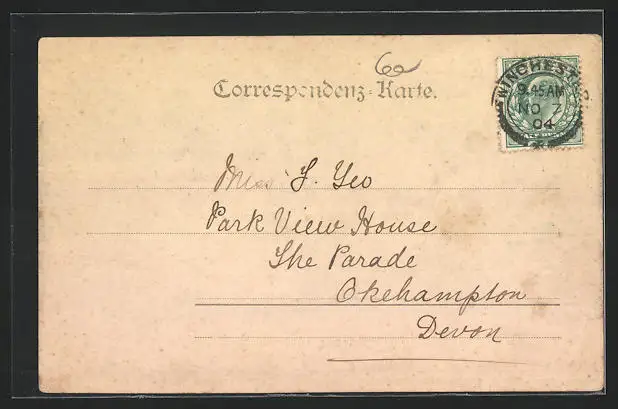 6a
Correspondenz-Karte.
WINCHESTER
9.45AM
NO 7
04
Miss F. Yeo
Park View House
The Parade
Okehampton
Devon